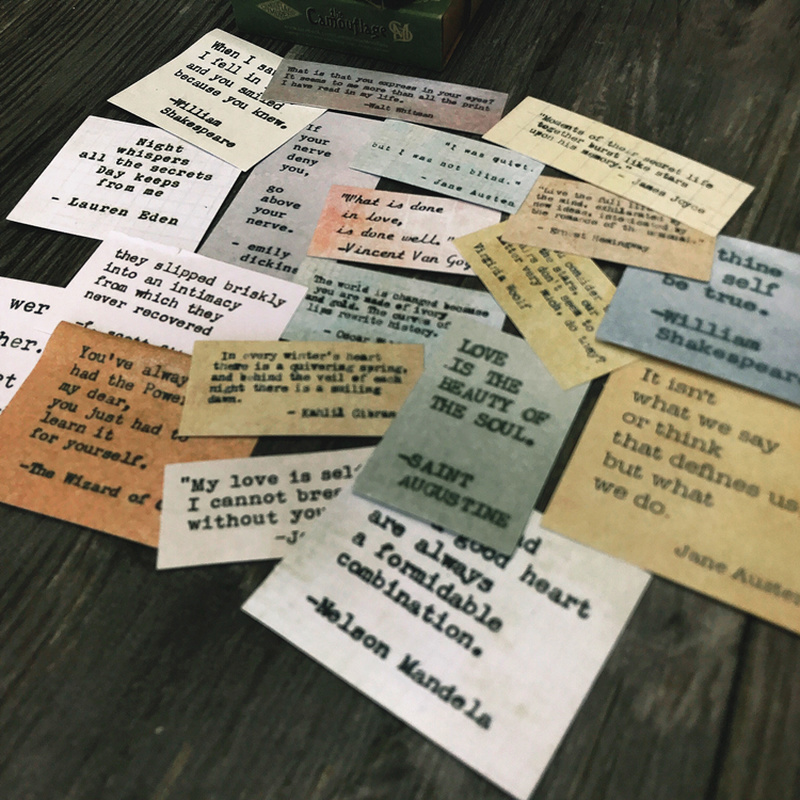 the
Camouflage
When I sa
I fell in
and you smiled
because you knew.
-William
Shakespeare
What is that you express in your eyes?
It seems to me more than all the print
I have read in my life.
-Walt Whitman
"Moments of their secret life
together burst like stars
upon his memory."
- James Joyce
Night
whispers
all the secrets
Day keeps
from me
- Lauren Eden
If
your
nerve
deny
you,
go
above
your
nerve.
- emily
dickins
"I was quiet,
but I was not blind."
- Jane Austen
"What is done
in love,
is done well."
-Vincent Van Gog
"Live the full life of
the mind, exhilarated by
new ideas, intoxicated by
the romance of the unusual."
- Ernest Hemingway
consider
the stars
our
don't seem to
matter very much, do they?
Virginia Woolf
thine
self
be true.
-William
Shakespeare
they slipped briskly
into an intimacy
from which they
never recovered
The world is changed because
you are made of ivory
and gold. The curves of
lips rewrite history.
- Oscar
wer
her.
et
You've alway
had the Power
my dear,
you just had to
learn it
for yourself.
-The Wizard of
In every winter's heart
there is a quivering spring,
and behind the veil of each
night there is a smiling
dawn.
- Kahlil Gibran
LOVE
IS THE
BEAUTY OF
THE SOUL.
-SAINT
AUGUSTINE
It isn't
what we say
or think
that defines us
but what
we do.
Jane Austen
"My love is sel
I cannot brea
without you
-J
a good heart
are always
a formidable
combination.
-Nelson Mandela